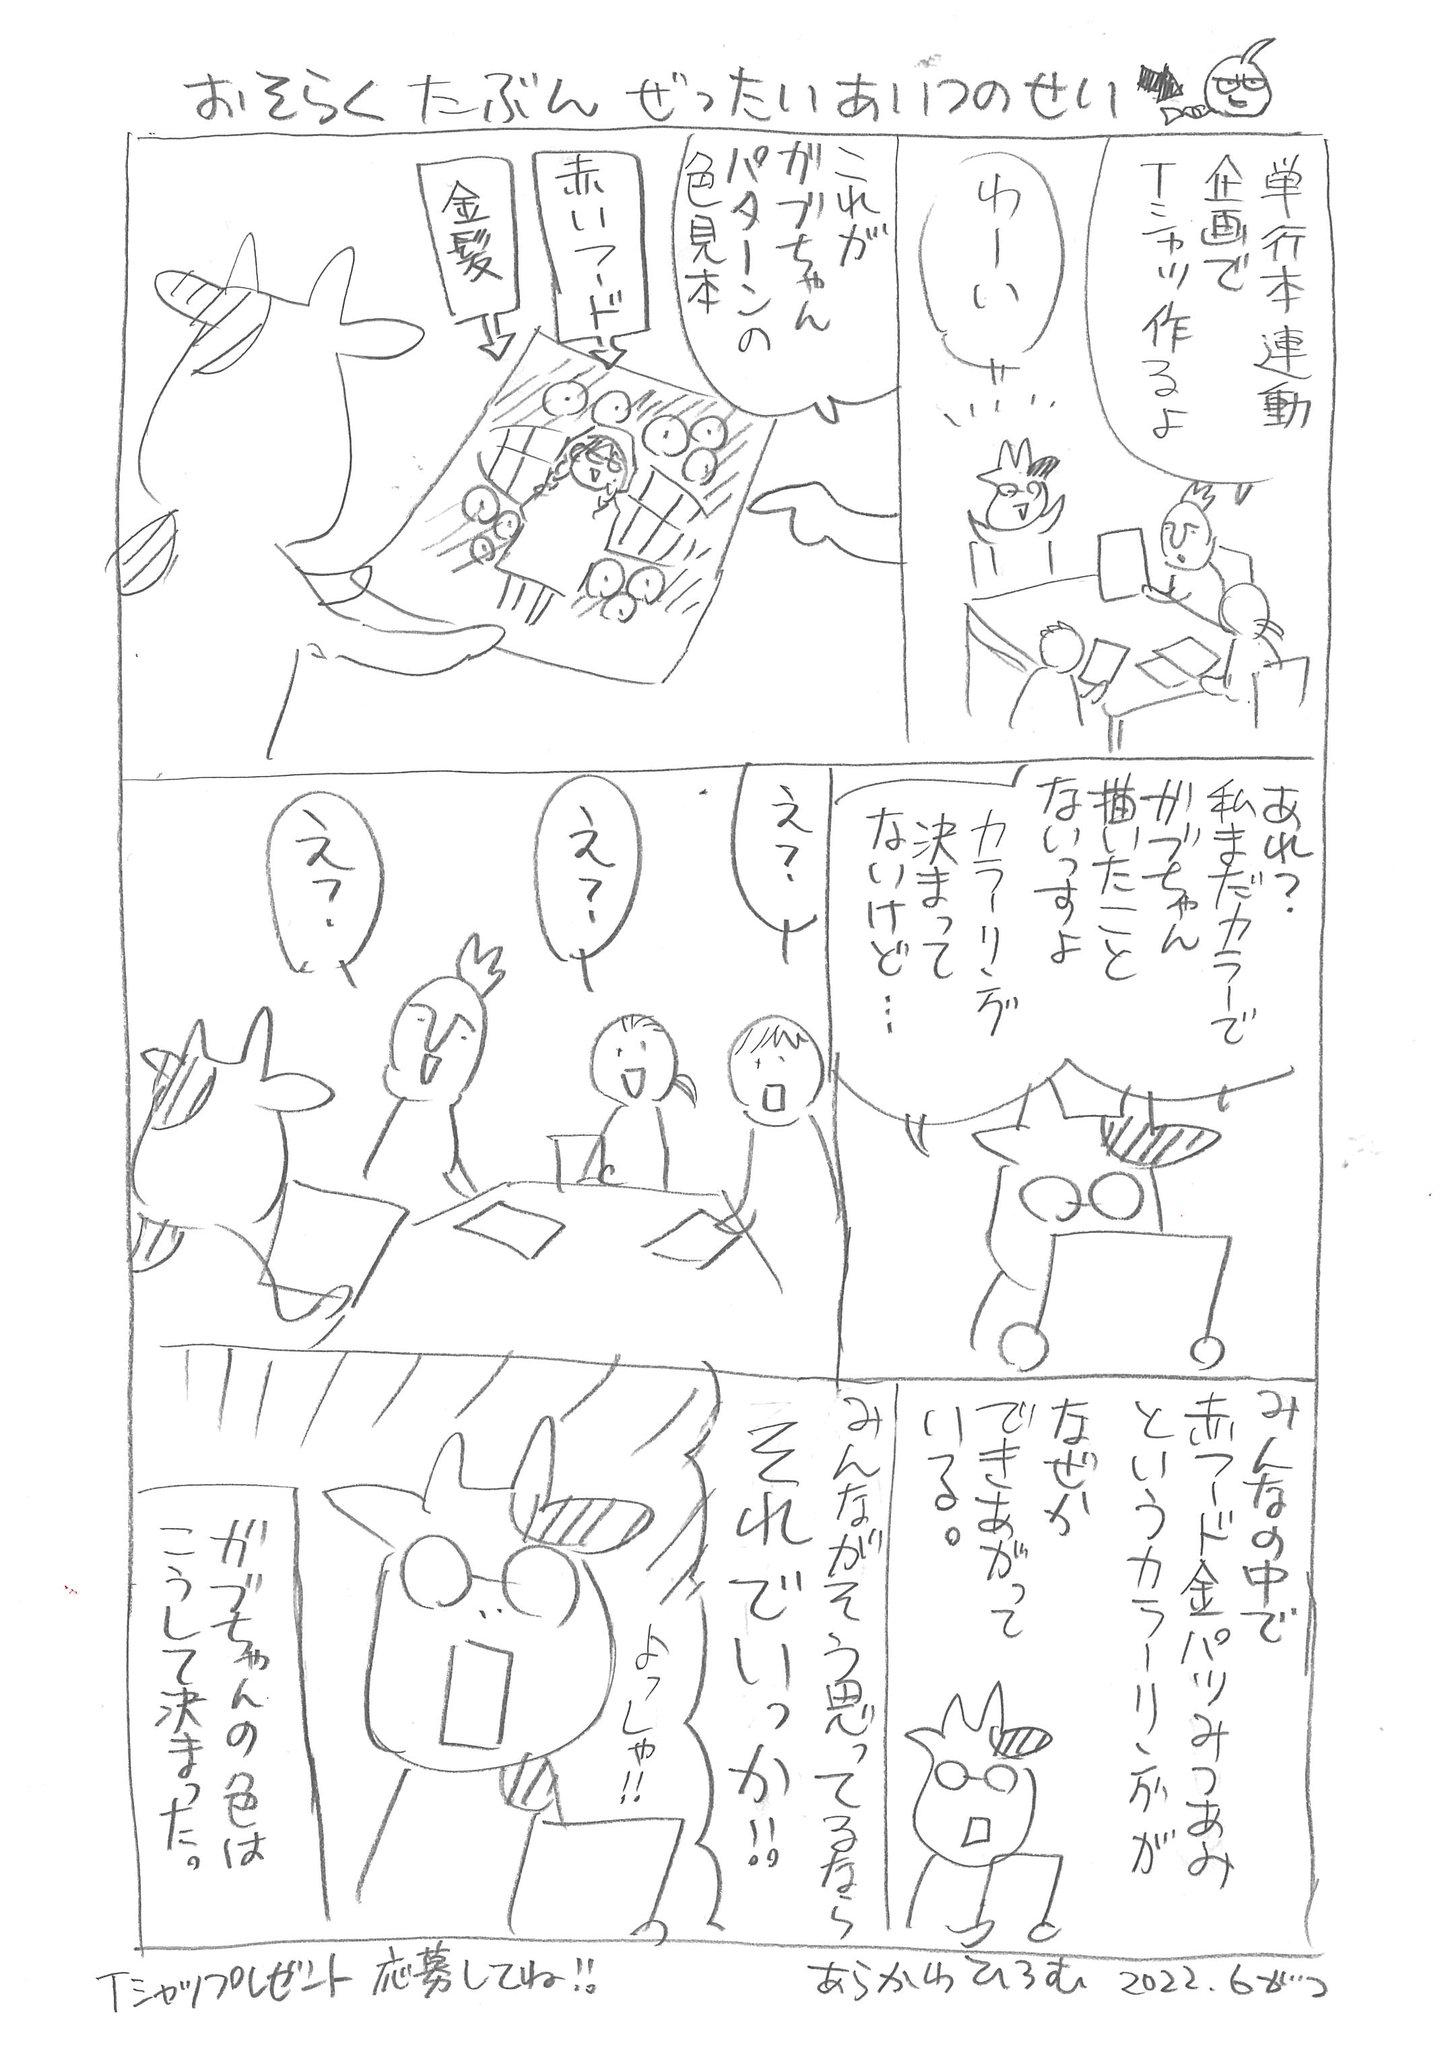 おそらくたぶんぜったいあいつのせい
単行本連動
企画で
Tシャツ作るよ
わーい
これが
ガブちゃん
パターンの
色見本
赤いフード
金髪
あれ?
私まだカラーで
ガブちゃん
描いたこと
ないっすよ
カラーリング
決まって
ないけど…
え?
え?
え?
みんなの中で
赤フード金パツみつあみ
というカラーリングが
なぜか
できあがって
いる。
みんながそう思ってるなら
それでいっか!!
よっしゃ!!
ガブちゃんの色は
こうして決まった。
Tシャツプレゼント 応募してね!!
あらかわひろむ 2022.6がつ